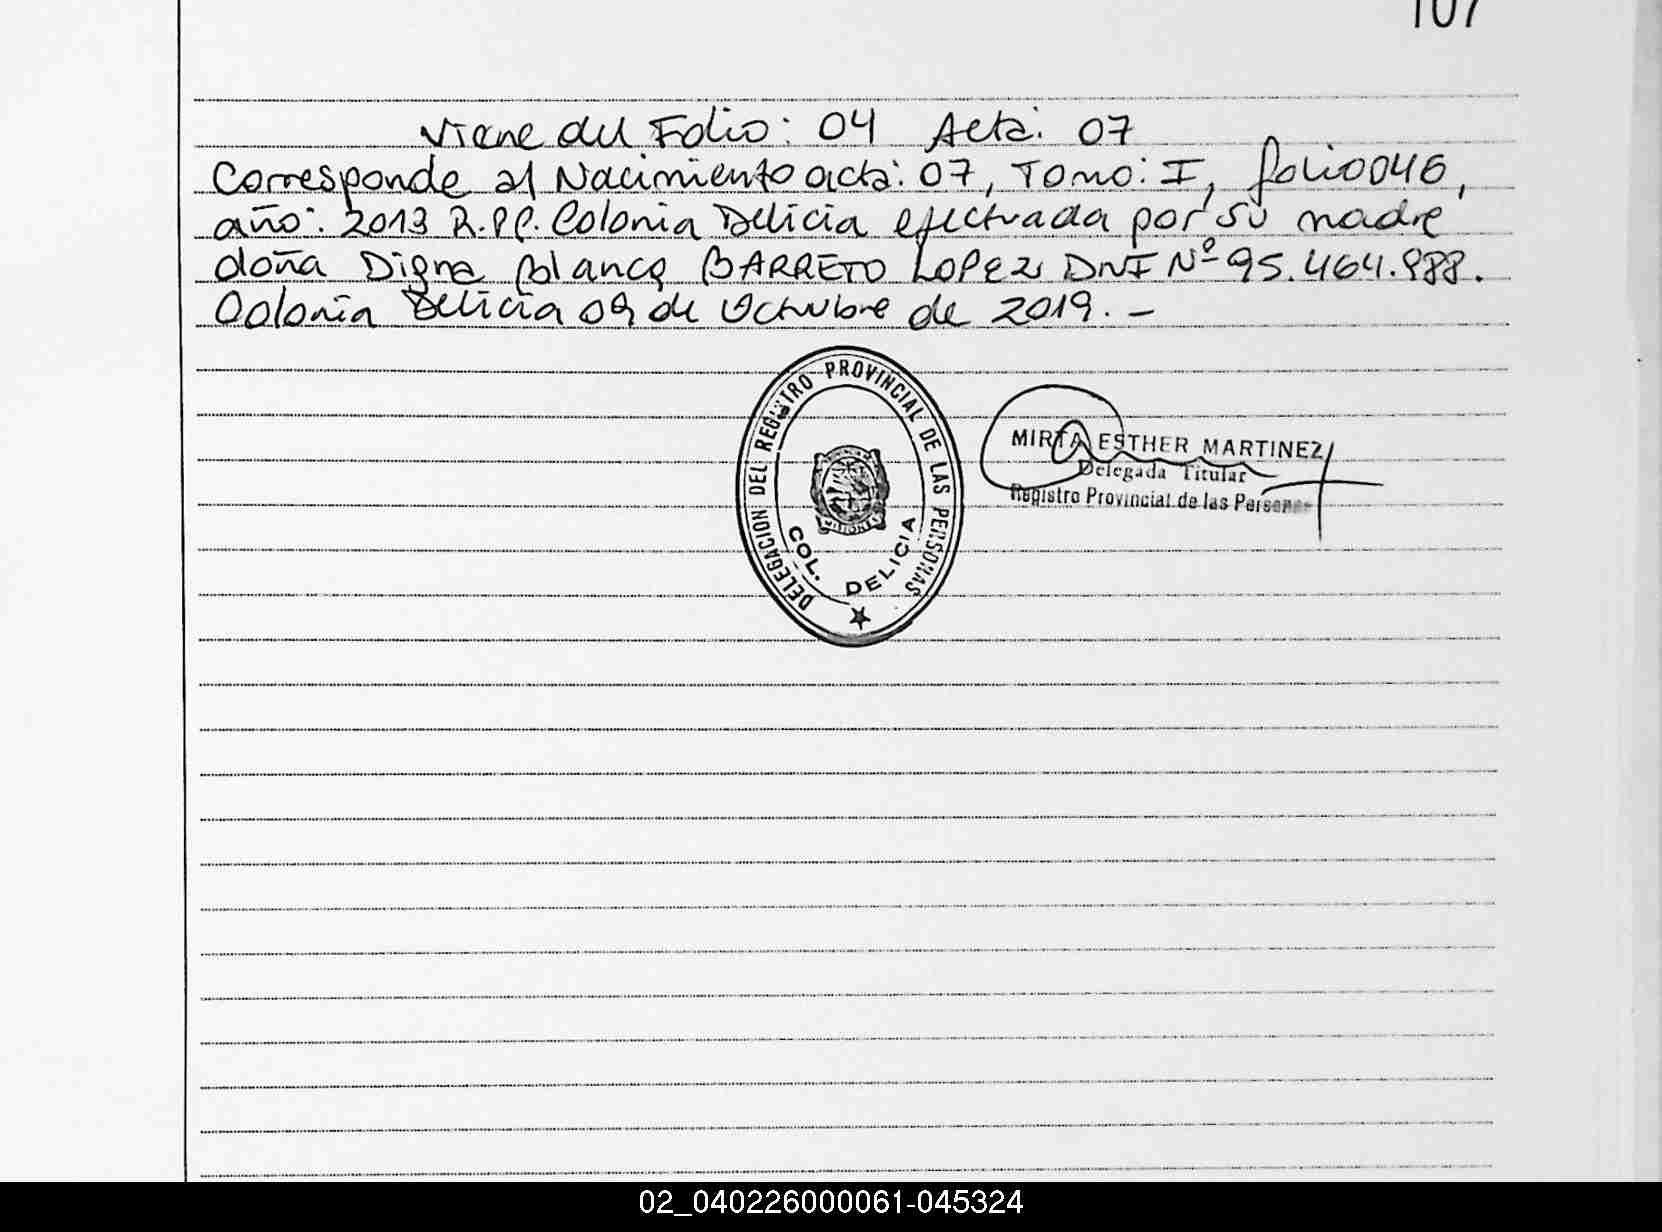 107
Viene del Folio: 04 Acta: 07
Corresponde al Nacimiento acta: 07, Tomo: I, folio 046,
año: 2013 R.P.P. Colonia Delicia efectuada por su madre
doña Digna Blanca BARRETO LOPEZ DNI Nº 95.464.988.
Colonia Delicia 09 de Octubre de 2019. -
DELEGACION DEL REGISTRO PROVINCIAL DE LAS PERSONAS
MISIONES
COL. DELICIA
MIRTA ESTHER MARTINEZ
Delegada Titular
Registro Provincial de las Personas
02_040226000061-045324